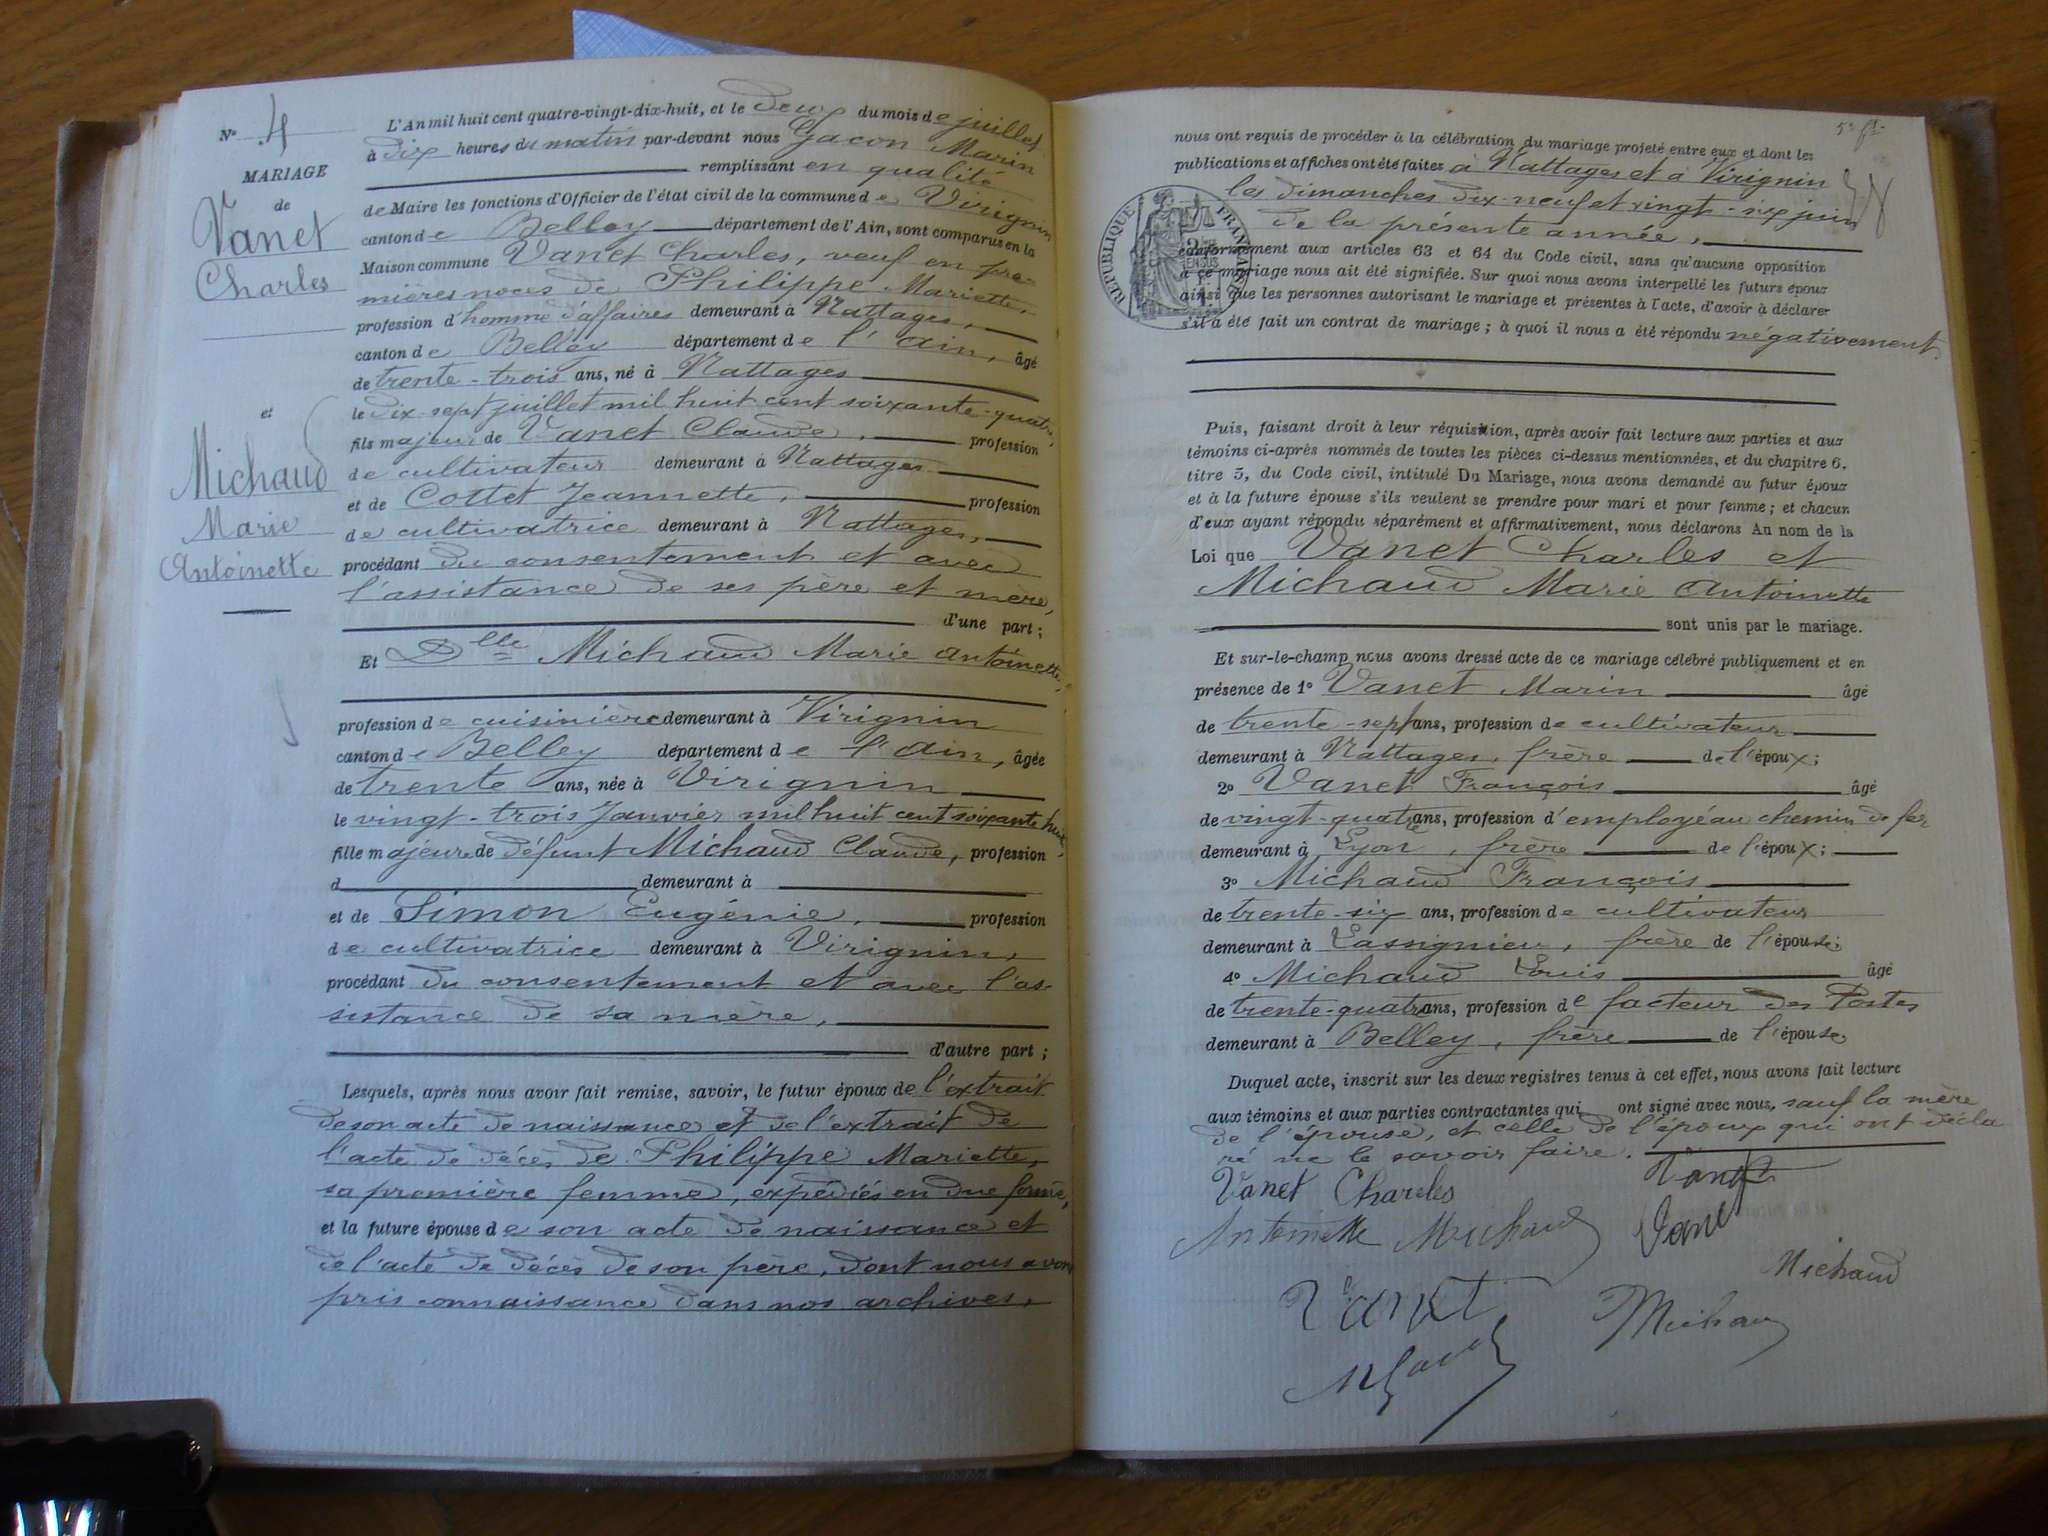 N° 4
MARIAGE
de
Vanet
Charles
et
Michaud
Marie
Antoinette
L'An mil huit cent quatre-vingt-dix-huit, et le deux du mois de juillet
à dix heures du matin par-devant nous Gacon Marin
remplissant en qualité
de Maire les fonctions d'Officier de l'état civil de la commune de Virignin
canton de Belley département de l'Ain, sont comparus en la
Maison commune Vanet Charles, veuf en pre-
mières noces de Philippe Mariette,
profession d'homme d'affaires demeurant à Nattages,
canton de Belley département de l'Ain, âgé
de trente-trois ans, né à Nattages
le dix-sept juillet mil huit cent soixante-quatre,
fils majeur de Vanet Claude, profession
de cultivateur demeurant à Nattages
et de Cottet Jeannette, profession
de cultivatrice demeurant à Nattages,
procédant du consentement et avec
l'assistance de ses père et mère,
d'une part ;
Et Dlle Michaud Marie Antoinette,
profession de cuisinière demeurant à Virignin
canton de Belley département de l'Ain, âgée
de trente ans, née à Virignin
le vingt-trois Janvier mil huit cent soixante huit,
fille majeure de défunt Michaud Claude, profession
d demeurant à
et de Simon Eugénie, profession
de cultivatrice demeurant à Virignin,
procédant du consentement et avec l'as-
sistance de sa mère,
d'autre part ;
Lesquels, après nous avoir fait remise, savoir, le futur époux de l'extrait
de son acte de naissance et de l'extrait de
l'acte de décès de Philippe Mariette,
sa première femme, expédiés en due forme,
et la future épouse de son acte de naissance et
de l'acte de décès de son père, dont nous avons
pris connaissance dans nos archives,
nous ont requis de procéder à la célébration du mariage projeté entre eux et dont les
publications et affiches ont été faites à Nattages et à Virignin
les dimanches dix-neuf et vingt-six juin
de la présente année,
conformément aux articles 63 et 64 du Code civil, sans qu'aucune opposition
à ce mariage nous ait été signifiée. Sur quoi nous avons interpellé les futurs époux
ainsi que les personnes autorisant le mariage et présentes à l'acte, d'avoir à déclarer
s'il a été fait un contrat de mariage ; à quoi il nous a été répondu négativement.
RÉPUBLIQUE FRANÇAISE
Puis, faisant droit à leur réquisition, après avoir fait lecture aux parties et aux
témoins ci-après nommés de toutes les pièces ci-dessus mentionnées, et du chapitre 6,
titre 5, du Code civil, intitulé Du Mariage, nous avons demandé au futur époux
et à la future épouse s'ils veulent se prendre pour mari et pour femme ; et chacun
d'eux ayant répondu séparément et affirmativement, nous déclarons Au nom de la
Loi que Vanet Charles et
Michaud Marie Antoinette
sont unis par le mariage.
Et sur-le-champ nous avons dressé acte de ce mariage célébré publiquement et en
présence de 1° Vanet Marin âgé
de trente-sept ans, profession de cultivateur
demeurant à Nattages, frère de l'époux ;
2° Vanet François âgé
de vingt-quatre ans, profession d'employé au chemin de fer
demeurant à Lyon, frère de l'époux ;
3° Michaud François
de trente-six ans, profession de cultivateur
demeurant à Lassignieu, frère de l'épouse ;
4° Michaud Louis âgé
de trente-quatre ans, profession de facteur des Postes
demeurant à Belley, frère de l'épouse
Duquel acte, inscrit sur les deux registres tenus à cet effet, nous avons fait lecture
aux témoins et aux parties contractantes qui ont signé avec nous, sauf la mère
de l'épouse, et celle de l'époux qui ont décla
ré ne le savoir faire.
Vanet Charles Vanet
Antoinette Michaud Vanet
Michaud
Vanet Michaud